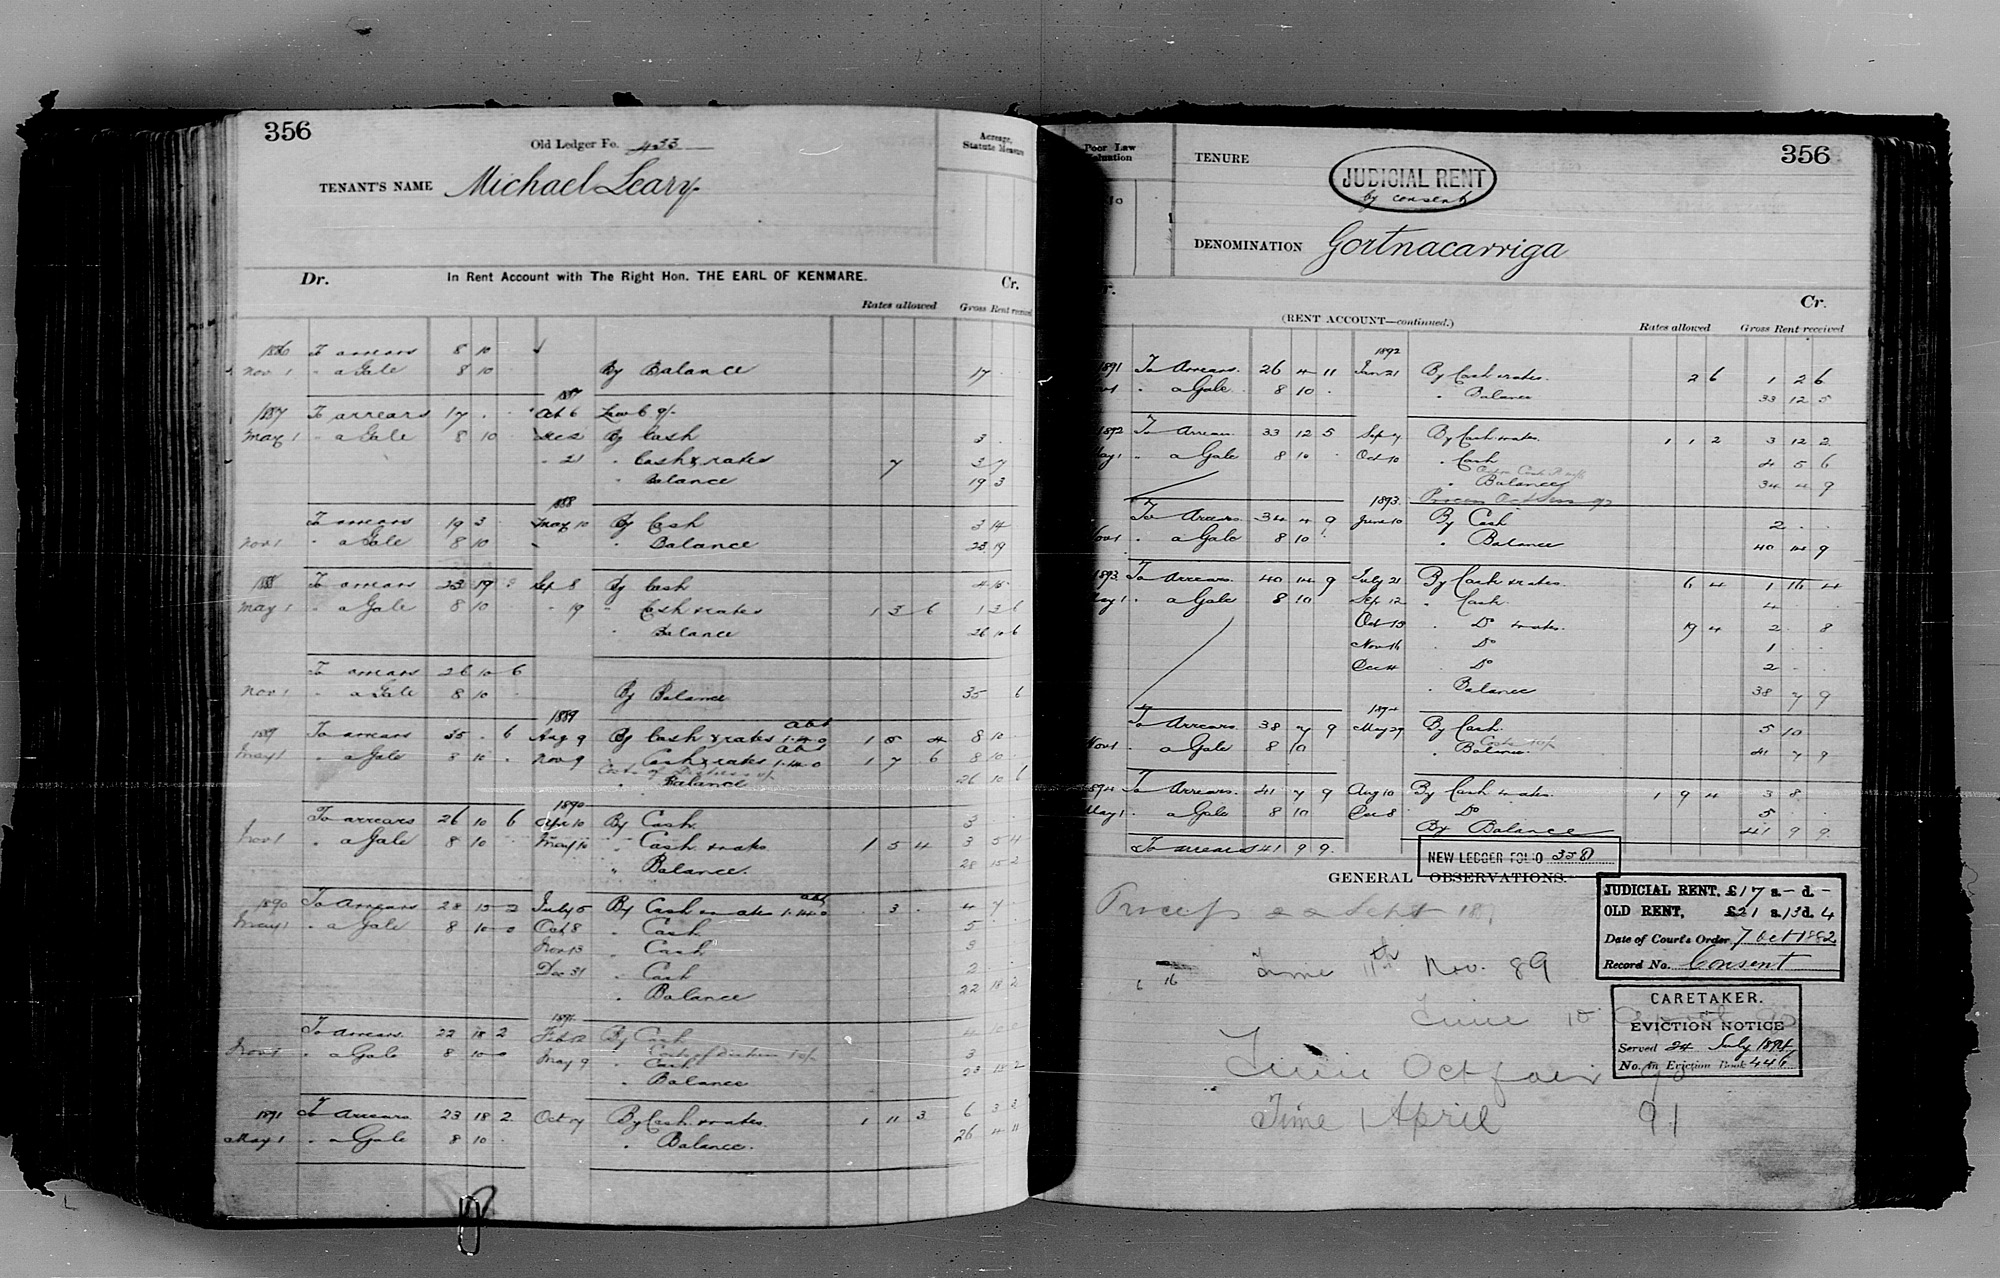 356
Old Ledger Fo. 433
Acreage, Statute Measure
TENANT'S NAME Michael Leary
Dr. In Rent Account with The Right Hon. THE EARL OF KENMARE. Cr.
Rates allowed Gross Rent received
1886 To arrears 8 10
Nov 1 " a Gale 8 10 By Balance 17
1887
1887 To arrears 17 . . Oct 6 Law C. 9/-
May 1 " a Gale 8 10 Dec 2 By Cash 3 .
" 21 " Cash & rates 7 3 7
" Balance 19 3
1888
To arrears 19 3 May 10 By Cash 3 14
Nov 1 " a Gale 8 10 " Balance 23 19
1888 To arrears 23 19 Sep 8 By Cash 4 15
May 1 " a Gale 8 10 " 19 " Cash & rates 1 3 6 1 3 6
" Balance 26 10 6
To arrears 26 10 6
Nov 1 " a Gale 8 10 By Balance 35 6
1889 abt
1889 To arrears 35 . 6 Aug 9 By Cash & rates 1.14.0 1 5 4 8 10
abt
May 1 " a Gale 8 10 . Nov 9 " Cash & rates 1.14.0 1 7 6 8 10
Costs of Distress
" Balance 26 10 6
1890
To arrears 26 10 6 Apr 10 By Cash 3
Nov 1 " a Gale 8 10 May 10 " Cash & rates 1 5 4 3 5 4
" Balance. 28 15 2
abt
1890 To Arrears 28 15 2 July 5 By Cash & rates 1.14.0 . 3 . 4 7
May 1 " a Gale 8 10 0 Oct 8 " Cash 5
Nov 13 " Cash 3
Dec 31 " Cash 2
" Balance 22 18 2
1891
To Arrears 22 18 2 Feb 12 By Cash 4
Nov 1 " a Gale 8 10 0 May 9 " Cash 3
" Balance 23 18 2
1891 To Arrears 23 18 2 Oct 17 By Cash & rates. 1 11 3 6 3 3
May 1 " a Gale 8 10 " Balance. 26 4 11
Poor Law Valuation
TENURE
JUDICIAL RENT
by consent
356
10
DENOMINATION Gortnacarriga
Cr.
(RENT ACCOUNT—continued.)
Rates allowed Gross Rent received
1892
1891 To Arrears. 26 4 11 Jan 21 By Cash & rates. 2 6 1 2 6
Nov 1 " a Gale 8 10 . " Balance 33 12 5
1892 To Arrears 33 12 5 Sep 7 By Cash & rates. 1 1 2 3 12 2
May 1 " a Gale 8 10 . Oct 10 " Cash 4 5 6
" Balance 34 4 9
1893
To Arrears 34 4 9 June 10 By Cash 2 . .
Nov 1 " a Gale 8 10 " Balance 40 14 9
1893 To Arrears. 40 14 9 July 21 By Cash & rates. 6 4 1 16 4
May 1 " a Gale 8 10 Sep 12 " Cash. 4 . .
Oct 13 " Do & rates. 19 4 2 . 8
Nov 16 " Do 1 . .
Dec 4 " Do 2 . .
" Balance 38 7 9
1894
To Arrears. 38 7 9 May 29 By Cash. 5 10
Nov 1 " a Gale 8 10 " Balance. 41 7 9
1894 To Arrears. 41 7 9 Aug 10 By Cash & rates. 1 9 4 3 8
May 1 " a Gale 8 10 Dec 8 " Do 5 . .
By Balance 41 9 9
To arrears 41 9 9
NEW LEDGER FOLIO 358
GENERAL OBSERVATIONS.
JUDICIAL RENT, £17 s. - d. -
OLD RENT, £21 s. 13 d. 4
Date of Court's Order 7 Oct 1882
Record No. Consent
Time 11th Nov. 89
6 16
Time 10 April 90
CARETAKER.
EVICTION NOTICE
Served 24 July 1894
No. in Eviction Book 446
Time Oct fair 90
Time 1 April 91